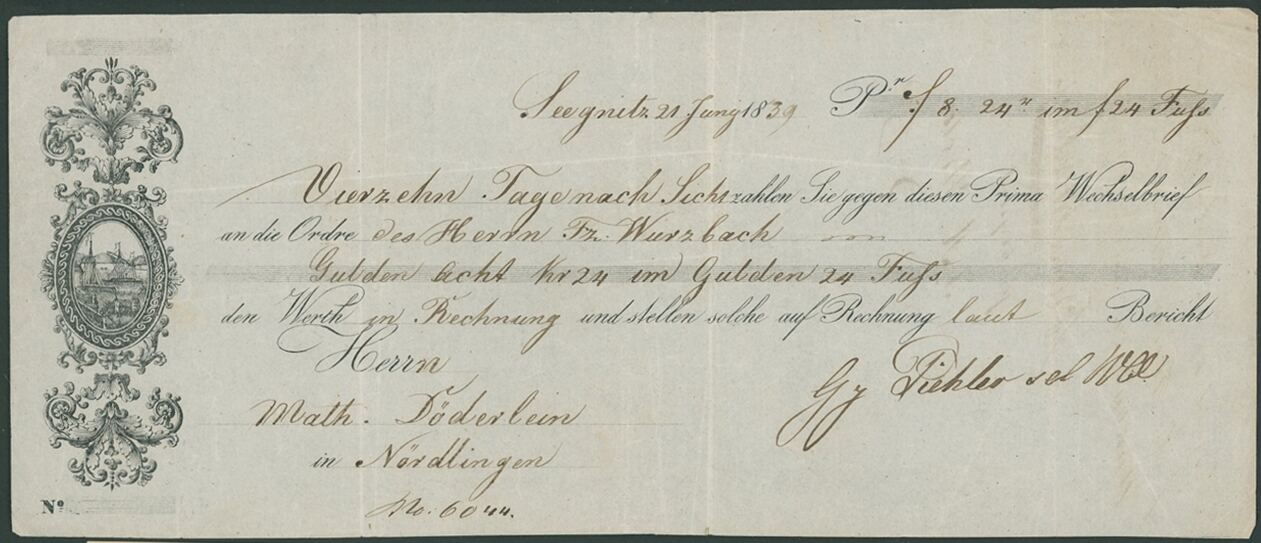 Seegnitz 21 Juny 1839 Pr. f 8. 24 xr im f 24 Fuss
Vierzehn Tage nach Sicht zahlen Sie gegen diesen Prima Wechselbrief
an die Ordre des Herrn Fz. Wurzbach
Gulden Acht Kr 24 im Gulden 24 Fuss
den Werth in Rechnung und stellen solche auf Rechnung laut Bericht
Herrn
Gg Pichler sel
Math. Döderlein
in Nördlingen
No. 6044.
No